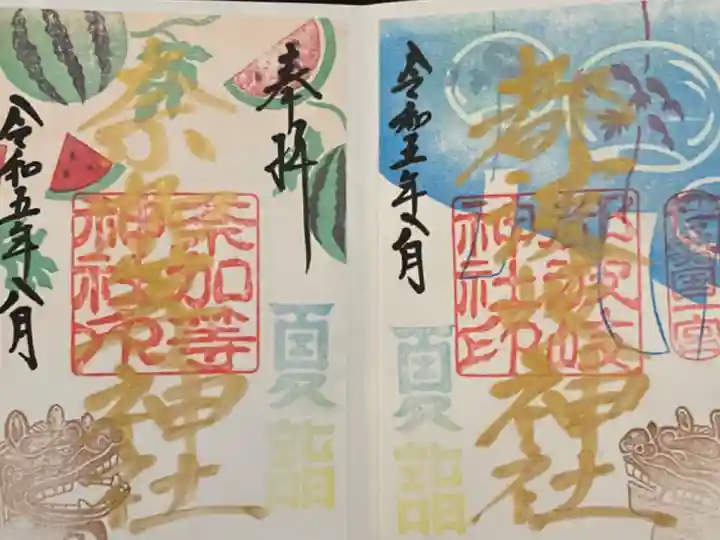 都波岐神社
都波岐神社印
令和五年八月
夏詣
奉拝
奈加等神社
奈加等神社印
令和五年八月
夏詣